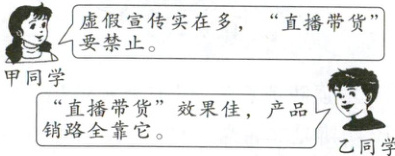 虚假宣传实在多，“直播带货”
要禁止。
甲同学
“直播带货”效果佳，产品
销路全靠它。
乙同学